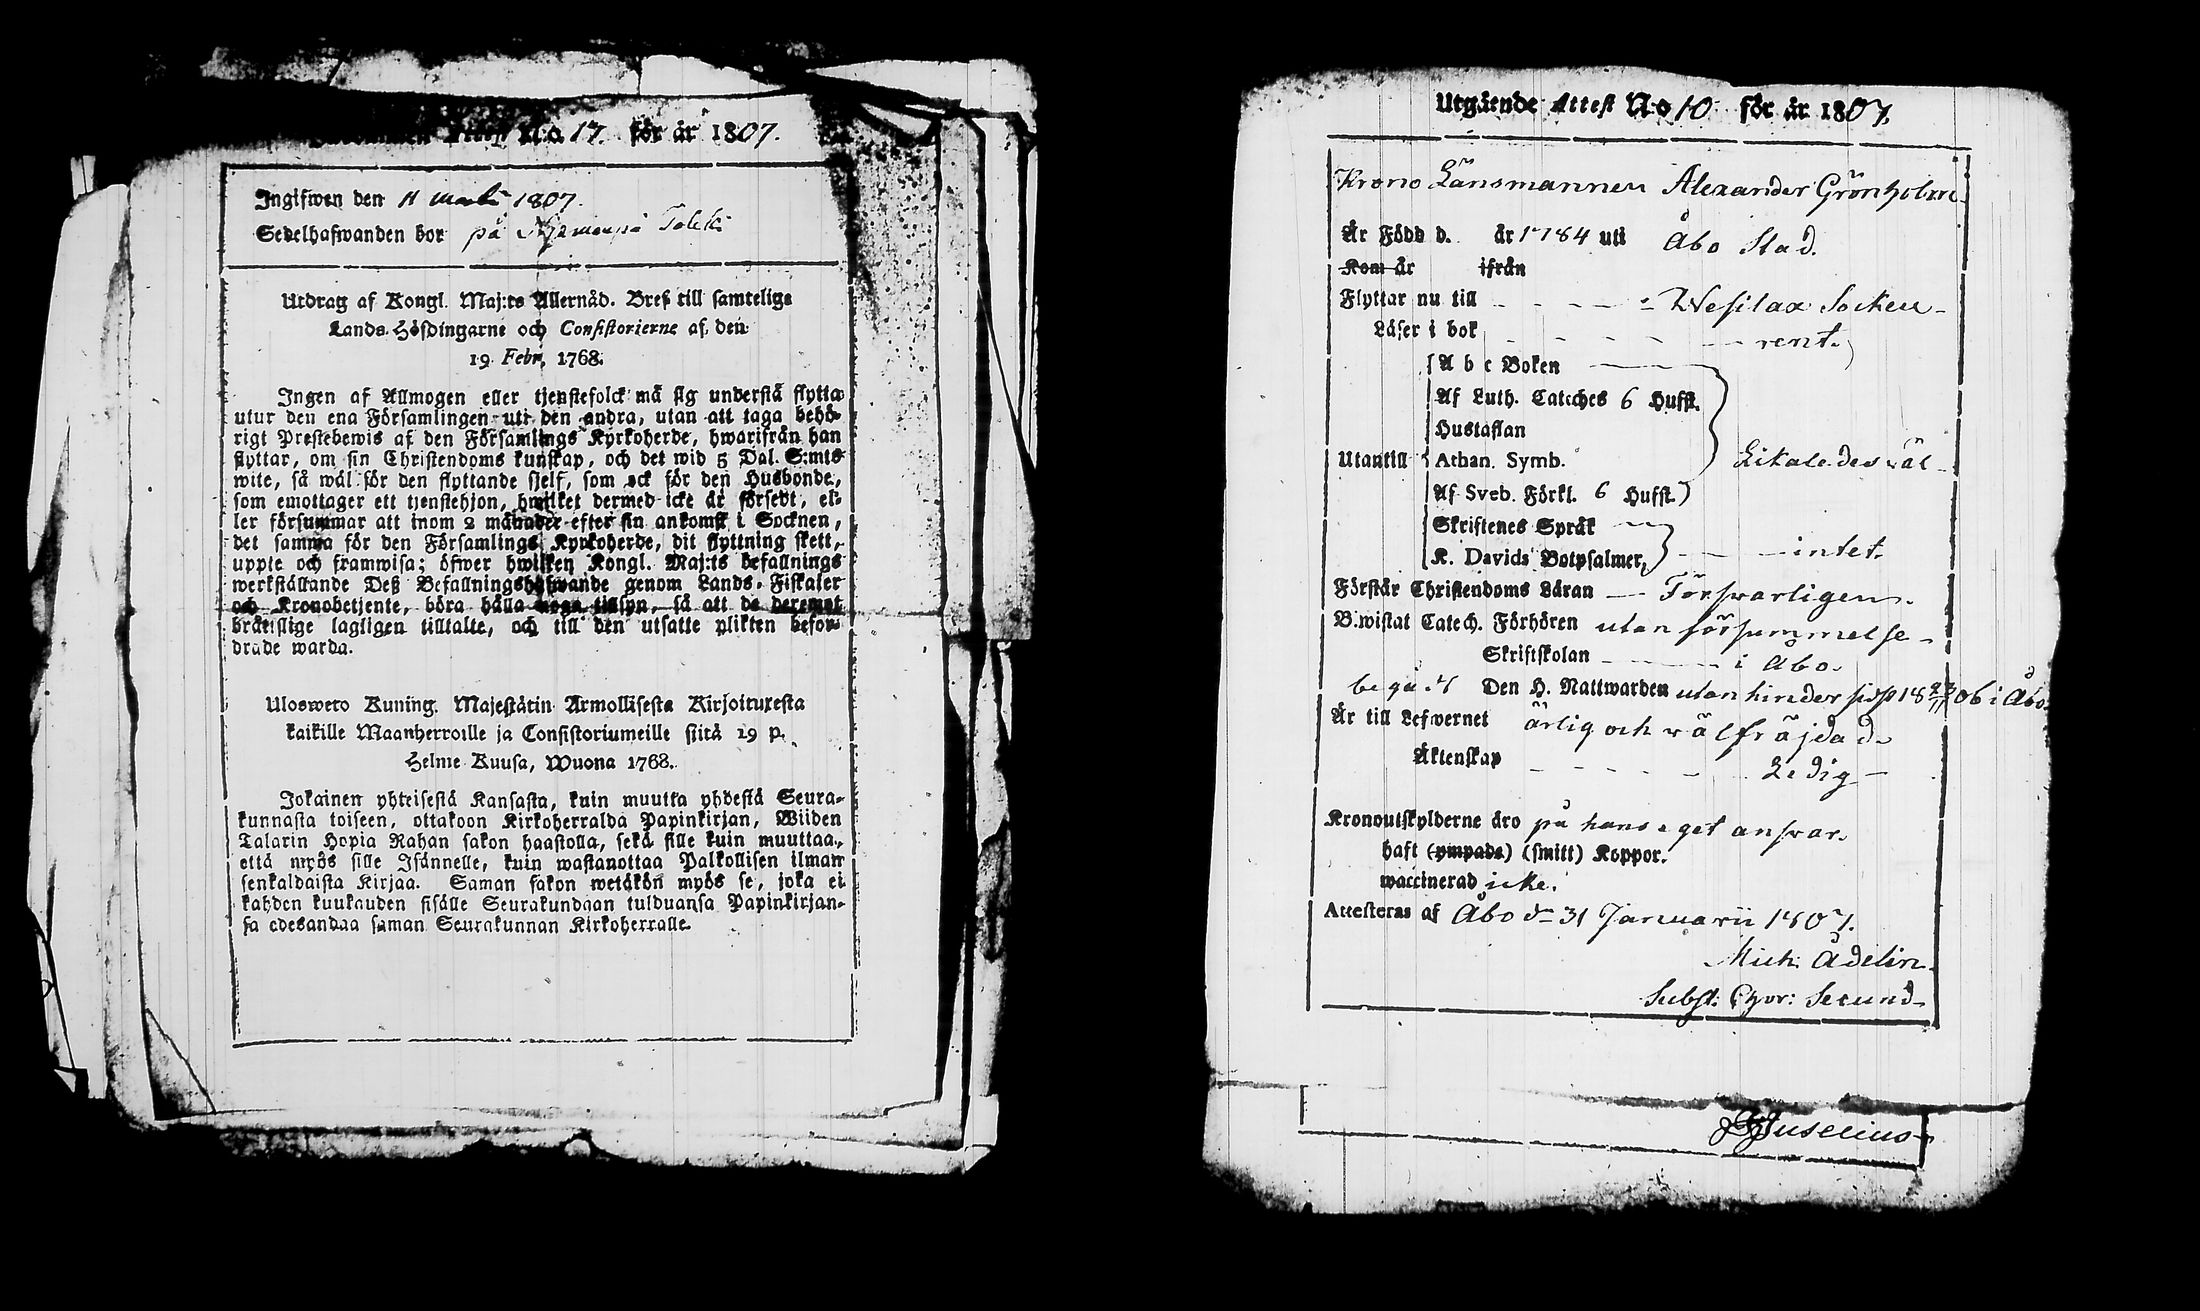 Attest No 17. för år 1807.
Ingifwen den 11 martii 1807.
Sedelhafwanden bor på
Utdrag af Kongl. Maj:ts Allernåd. Bref till samtelige
Lands-Höfdingarne och Consistorierne af den
19 Febr. 1768.
Ingen af Allmogen eller tjenstefolck må sig understå flytta
utur den ena Församlingen uti den andra, utan att taga behö-
rigt Prestebewis af den Församlings Kyrkoherde, hwarifrån han
flyttar, om sin Christendoms kunskap, och det wid 5 Dal. S:mts
wite, så wäl för den flyttande sjelf, som ock för den Husbonde,
som emottager ett tjenstehjon, hwilket dermed icke är försedt, el-
ler försummar att inom 2 månader efter sin ankomst i Socknen,
det samma för den Församlings Kyrkoherde, dit flyttning skett,
uppte och framwisa; öfwer hwilken Kongl. Maj:ts befallnings
werkställande Deß Befallningshafwande genom Lands-Fiskaler
och Kronobetjente, böra hålla noga tillsyn, så att de deremot
brätslige lagligen tilltalte, och till den utsatte plikten befor-
drade warda.
Uloswero Kuning. Majestätin Armollisesta Kirjoituxesta
kaikille Maanherroille ja Consistoriumeille siitä 19 p.
Helme Kuusa, Wuona 1768.
Jokainen yhteisestä Kansasta, kuin muutta yhdestä Seura-
kunnasta toiseen, ottakoon Kirkoherralda Papinkirjan, Wiiden
Talarin Hopia Rahan sakon haastolla, sekä sille kuin muuttaa,
että myös sille Isännelle, kuin wastanottaa Palkollisen ilman
senkaldaista Kirjaa. Saman sakon wetäkön myös se, joka ei
kahden kuukauden sisälle Seurakundaan tulduansa Papinkirjan-
sa edesandaa saman Seurakunnan Kirkoherralle.
Utgående Attest No 10 för år 1807.
Krono Länsmannen Alexander Grönholm
Är Född d. år 1784 uti Åbo Stad.
Kom år ifrån
Flyttar nu till Wesilax Socken
Läser i bok rent.
A b c Boken
Af Luth. Cateches 6 Hufst.
Hustaflan
Utantill Athan. Symb. Likaledes wäl
Af Sveb. Förkl. 6 Hufst.
Skriftenes Språk
K. Davids Botpsalmer, intet.
Förstår Christendoms Läran Förswarligen.
B.wistat Catech. Förhören utan försummelse
Skriftskolan i Åbo.
begått Den H. Nattwarden utan hinder sidst 18 23/11 06 i Åbo
Är till Lefwernet ärlig och wälfräjdad
Äktenskap Ledig
Kronoutskylderne äro på hans eget answar.
haft (ympade) (smitt) Koppor.
waccinerad icke.
Attesteras af Åbo dn 31 Januarii 1807.
Mich. Ådelin
Subst: Chor: Secund.
Juselius